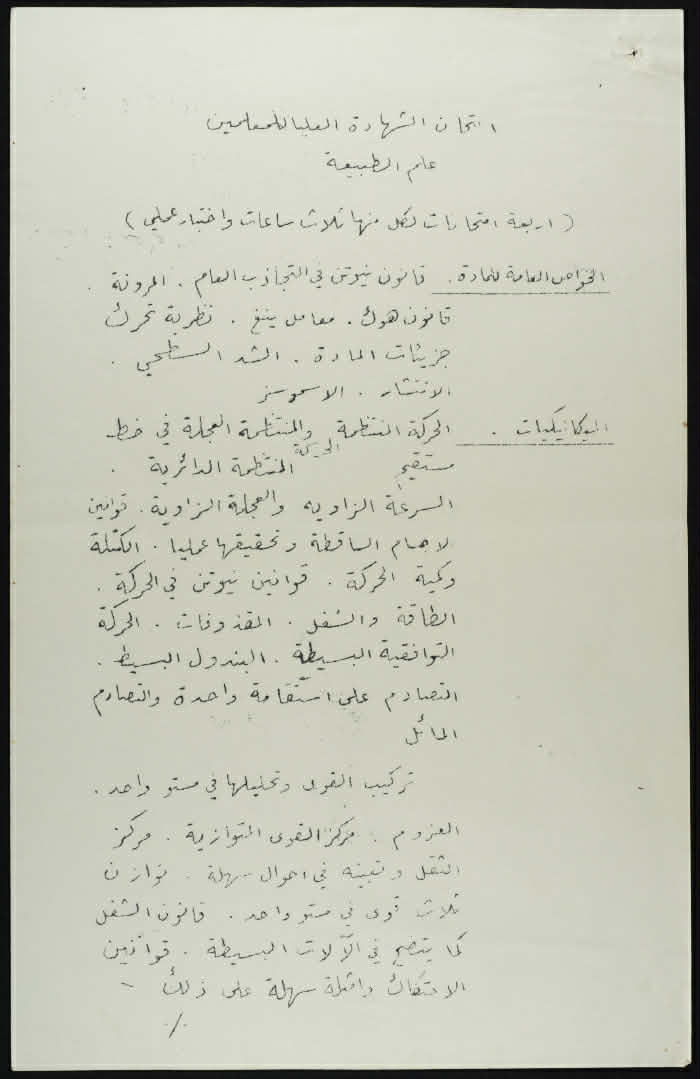 امتحان الشهادة العليا للمعلمين
علم الطبيعة
( اربعة امتحانات لكل منها ثلاث ساعات واختبار عملي )
الخواص العامة للمادة . قانون نيوتن في التجاذب العام . المرونة .
قانون هوك . معامل ينغ . نظرية تحرك
جزيئات المادة . الشد السطحي .
الانتشار . الاسموسز
الميكانيكيات . الحركة المنتظمة والمنتظمة العجلة في خط
مستقيم الحركة المنتظمة الدائرية .
السرعة الزاويه والعجلة الزاوية . قوانين
الاجسام الساقطة وتحقيقها عمليا . الكتلة
وكمية الحركة . قوانين نيوتن في الحركة .
الطاقة والشغل . المقذوفات . الحركة
التوافقية البسيطة . البندول البسيط .
التصادم على استقامة واحدة والتصادم
المائل
تركيب القوى وتحليلها في مستو واحد .
العزوم . مركز القوى المتوازية . مركز
الثقل وتعيينه في احوال سهلة . توازن
ثلاث قوى في مستو واحد . قانون الشغل
كما يتضح في الآلات البسيطة . قوانين
الاحتكاك وامثلة سهلة على ذلك -
./.